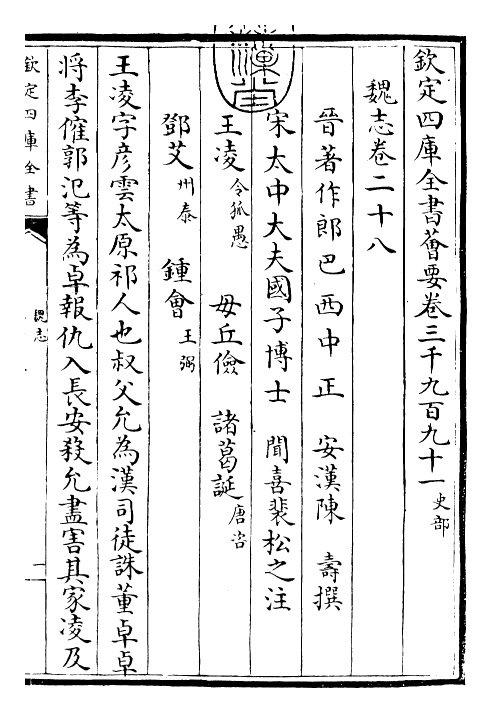 欽定四庫全書薈要卷三千九百九十一史部
魏志卷二十八
晉著作郎巴西中正 安漢陳 壽撰
宋太中大夫國子博士 聞喜裴松之注
王凌令狐愚 毋丘儉 諸葛誕唐咨
鄧艾州泰 鍾會王弼
王凌字彦雲太原祁人也叔父允為漢司徒誅董卓卓
將李傕郭汜等為卓報仇入長安殺允盡害其家凌及
欽定四庫全書
魏志
一